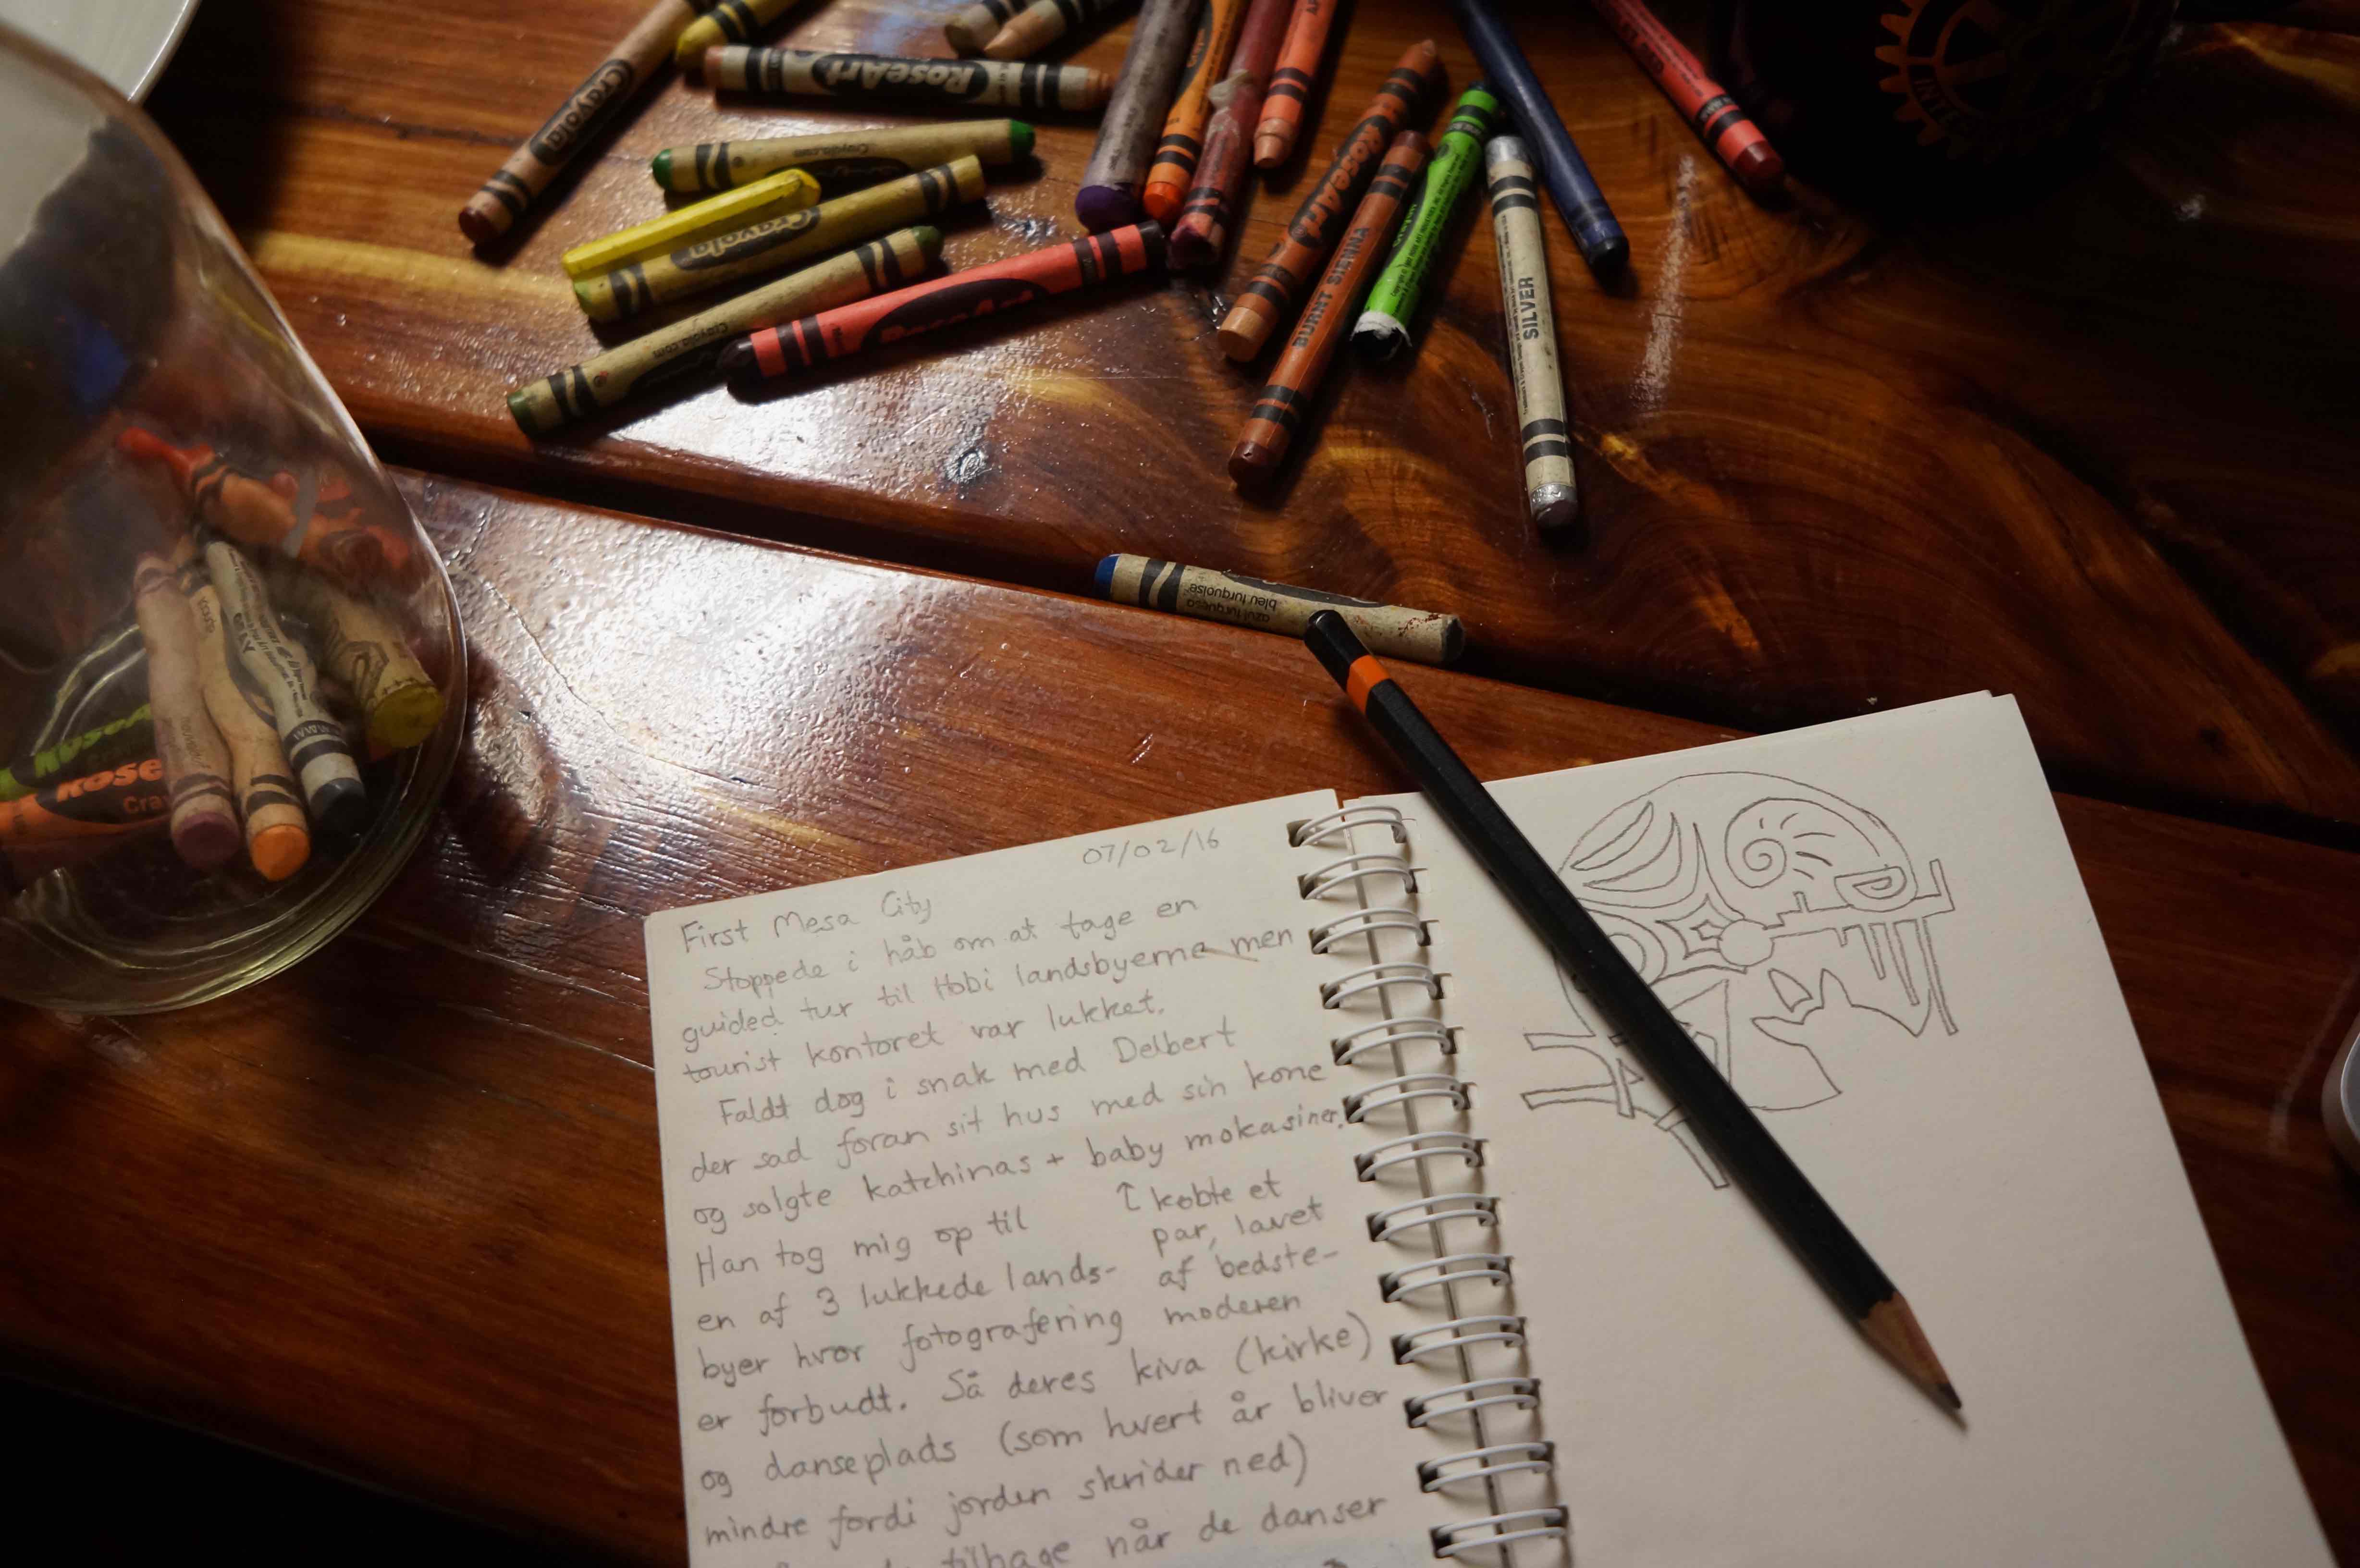 Crayola
RoseArt
Crayola.com
Crayola
Crayola.com
RoseArt
RoseArt
BURNT SIENNA
SILVER
azul turquesa
bleu turquoise
INTE
RoseA
Rose
Cra
07/02/16
First Mesa City
Stoppede i håb om at tage en
guided tur til Hobi landsbyerne men
tourist kontoret var lukket.
Faldt dog i snak med Delbert
der sad foran sit hus med sin kone
og solgte katchinas + baby mokasiner.
↑ købte et
par, lavet
af bedste-
moderen
Han tog mig op til
en af 3 lukkede lands-
byer hvor fotografering
er forbudt. Så deres kiva (kirke)
og danseplads (som hvert år bliver
mindre fordi jorden skrider ned)
tilbage når de danser